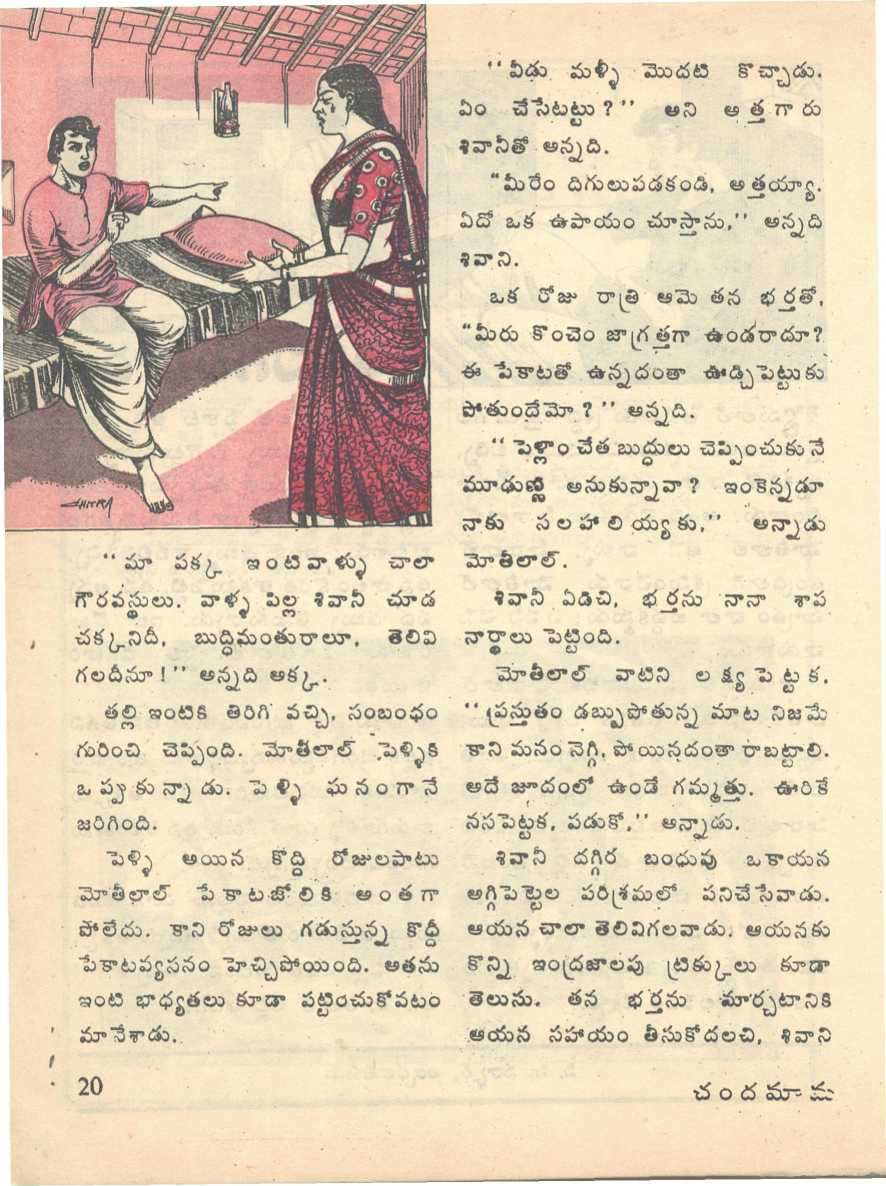 CHITRA
‘‘మా పక్క ఇంటివాళ్ళు చాలా
గౌరవస్థులు. వాళ్ళ పిల్ల శివానీ చూడ
చక్కనిదీ, బుద్ధిమంతురాలూ, తెలివి
గలదీనూ!’’ అన్నది అక్క.
తల్లి ఇంటికి తిరిగి వచ్చి, సంబంధం
గురించి చెప్పింది. మోతీలాల్ పెళ్ళికి
ఒప్పుకున్నాడు. పెళ్ళి ఘనంగానే
జరిగింది.
పెళ్ళి అయిన కొద్ది రోజులపాటు
మోతీలాల్ పేకాటజోలికి అంతగా
పోలేదు. కాని రోజులు గడుస్తున్న కొద్దీ
పేకాటవ్యసనం హెచ్చిపోయింది. అతను
ఇంటి భాధ్యతలు కూడా పట్టించుకోవటం
మానేశాడు.
‘‘వీడు మళ్ళీ మొదటి కొచ్చాడు.
ఏం చేసేటట్టు?’’ అని అత్తగారు
శివానీతో అన్నది.
“మీరేం దిగులుపడకండి, అత్తయ్యా.
ఏదో ఒక ఉపాయం చూస్తాను,’’ అన్నది
శివాని.
ఒక రోజు రాత్రి ఆమె తన భర్తతో,
“మీరు కొంచెం జాగ్రత్తగా ఉండరాదూ?
ఈ పేకాటతో ఉన్నదంతా ఊడ్చిపెట్టుకు
పోతుందేమో?’’ అన్నది.
‘‘పెళ్లాంచేత బుద్ధులు చెప్పించుకునే
మూఢుణ్ణి అనుకున్నావా? ఇంకెన్నడూ
నాకు సలహాలియ్యకు,’’ అన్నాడు
మోతీలాల్.
శివానీ ఏడిచి, భర్తను నానా శాప
నార్థాలు పెట్టింది.
మోతీలాల్ వాటిని లక్ష్యపెట్టక,
‘‘ప్రస్తుతం డబ్బుపోతున్న మాట నిజమే
కాని మనం నెగ్గి, పోయినదంతా రాబట్టాలి.
అదే జూదంలో ఉండే గమ్మత్తు. ఊరికే
నసపెట్టక, పడుకో,’’ అన్నాడు.
శివానీ దగ్గిర బంధువు ఒకాయన
అగ్గిపెట్టెల పరిశ్రమలో పనిచేసేవాడు.
ఆయన చాలా తెలివిగలవాడు. ఆయనకు
కొన్ని ఇంద్రజాలపు ట్రిక్కులు కూడా
తెలుసు. తన భర్తను మార్చటానికి
ఆయన సహాయం తీసుకోదలచి, శివాని
20
చందమామ